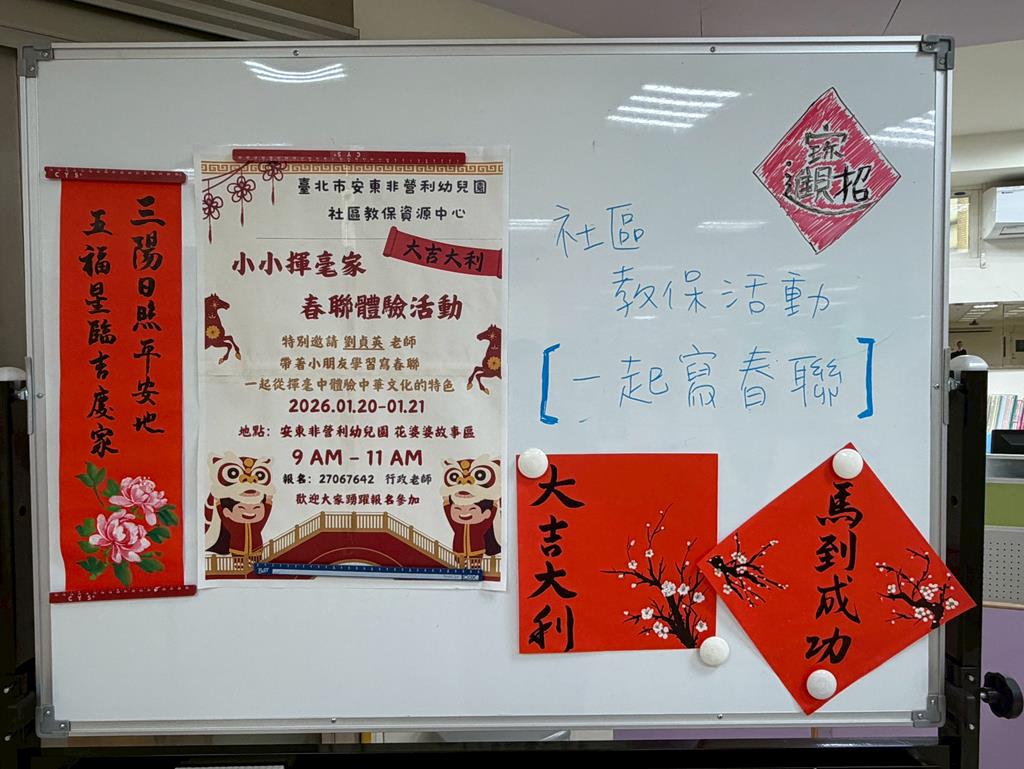 三陽日照平安地
五福星臨吉慶家
臺北市安東非營利幼兒園
社區教保資源中心
大吉大利
小小揮毫家
春聯體驗活動
特別邀請 劉貞英 老師
帶著小朋友學習寫春聯
一起從揮毫中體驗中華文化的特色
2026.01.20-01.21
地點：安東非營利幼兒園 花婆婆故事區
9 AM – 11 AM
報名：27067642 行政老師
歡迎大家踴躍報名參加
招財進寶
社區
教保活動
[一起寫春聯]
大吉大利
馬到成功